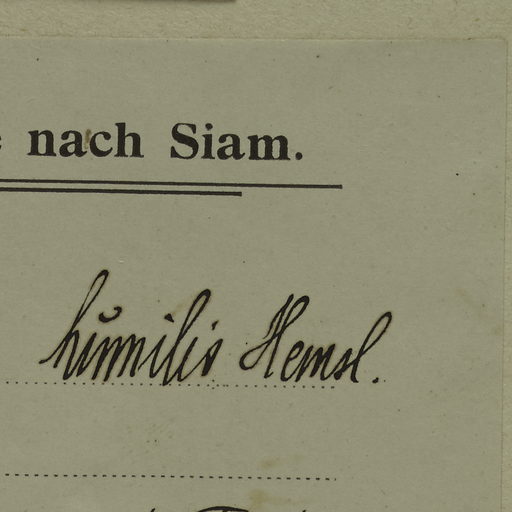 nach Siam.
humilis Hemsl.